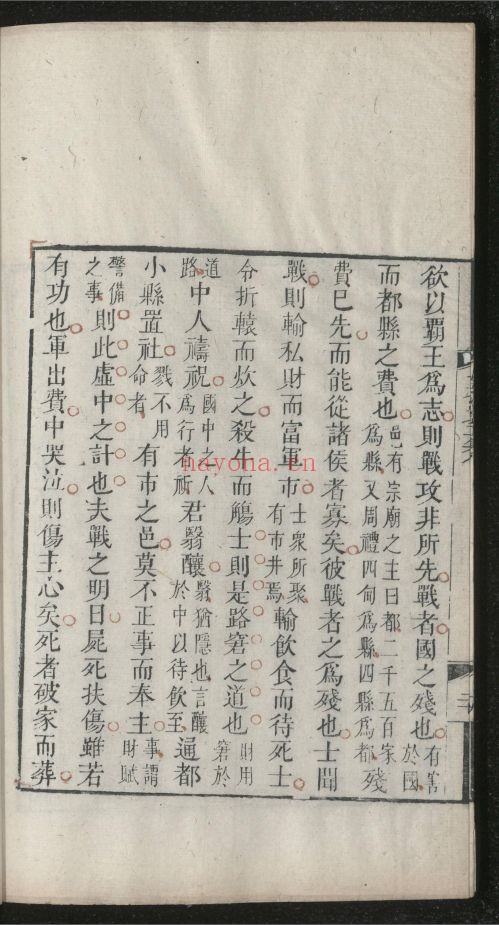 欲以霸王爲志則戰攻非所先戰者國之殘也有害於國
而都縣之費也邑有宗廟之主曰都二千五百家爲縣又周禮四甸爲縣四縣爲都殘
費已先而能從諸侯者寡矣彼戰者之爲殘也士聞
戰則輸私財而富軍市士衆所聚有市井焉輸飲食而待死士
令折轅而炊之殺牛而觴士則是路窘之道也財用窘於
道路中人禱祝國中之人爲行者祈君翳釀翳猶隱也言釀於中以待飲至通都
小縣置社戮不用命者有市之邑莫不正事而奉王事謂財賦
警備之事則此虛中之計也夫戰之明日屍死扶傷雖若
有功也軍出費中哭泣則傷主心矣死者破家而葬
nayona.cn